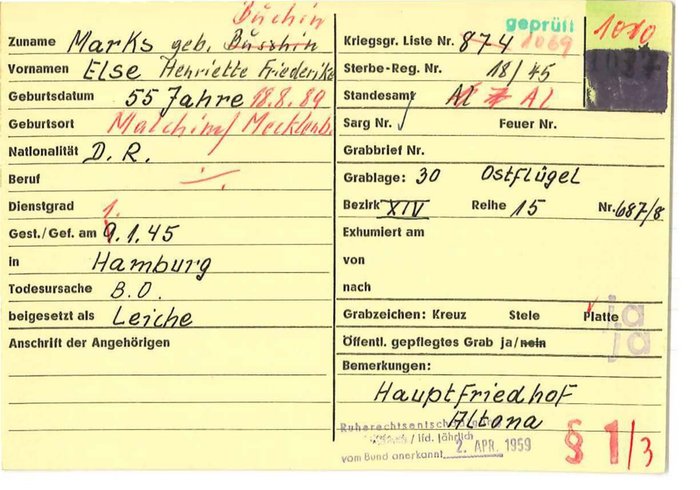 Büchin
Zuname Marks geb. Büsshin
Vornamen Else Henriette Friederike
Geburtsdatum 55 Jahre 18.8.89
Geburtsort Malchin/ Mecklenb.
Nationalität D. R.
Beruf
Dienstgrad
Gest./Gef. am 9.1.45
in Hamburg
Todesursache B.O.
beigesetzt als Leiche
Anschrift der Angehörigen
geprüft
1010
Kriegsgr. Liste Nr. 874 1069
1037
Sterbe-Reg. Nr. 18/45
Standesamt Al Al
Sarg Nr. Feuer Nr.
Grabbrief Nr.
Grablage: 30 Ostflügel
Bezirk XIV Reihe 15 Nr. 687/8
Exhumiert am
von
nach
Grabzeichen: Kreuz Stele Platte ja
Öffentl. gepflegtes Grab ja/nein ja
Bemerkungen:
Hauptfriedhof
Altona
lfd. jährlich
vom Bund anerkannt 2. APR. 1959
§ 1/3